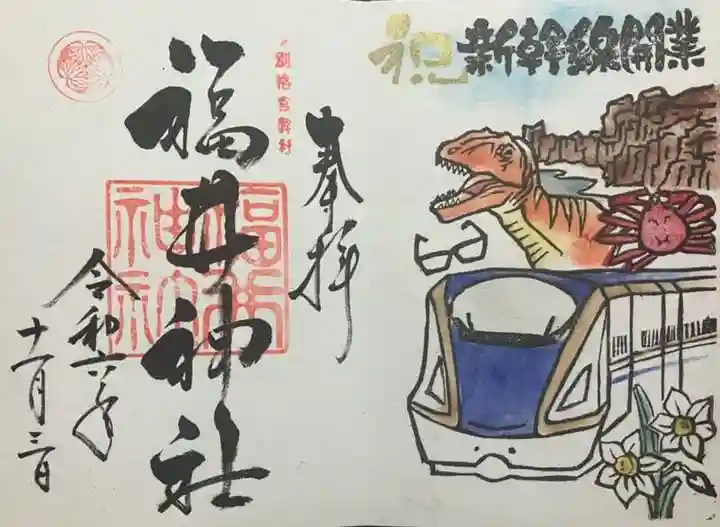 祝 新幹線開業
奉拝
別格官幣社
福井神社
福井
神社
令和六年
十一月三日